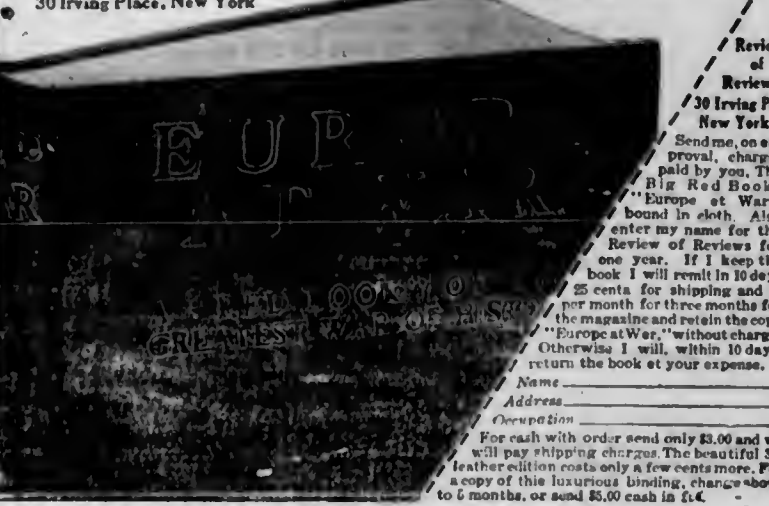 30 Irving Place, New York
EUR
R
GREATEST WAR OF HIST
Revie
of
Review
30 Irving P
New York
Send me, on a
proval, charg
paid by you, Th
Big Red Book
"Europe et War
bound in cloth. Als
enter my name for th
Review of Reviews fo
one year. If I keep th
book I will remit in 10 day
25 centa for shipping and
per month for three months fo
the magazine and retain the cop
"Europe at Wer," without charg
Otherwise I will, within 10 day
return the book et your expense.
Name
Address
Occupation
For cash with order send only $3.00 and w
will pay shipping charges. The beautiful 3
leather edition costs only a few cents more. F
a copy of this luxurious binding, change abo
to 5 months, or send $5.00 cash in